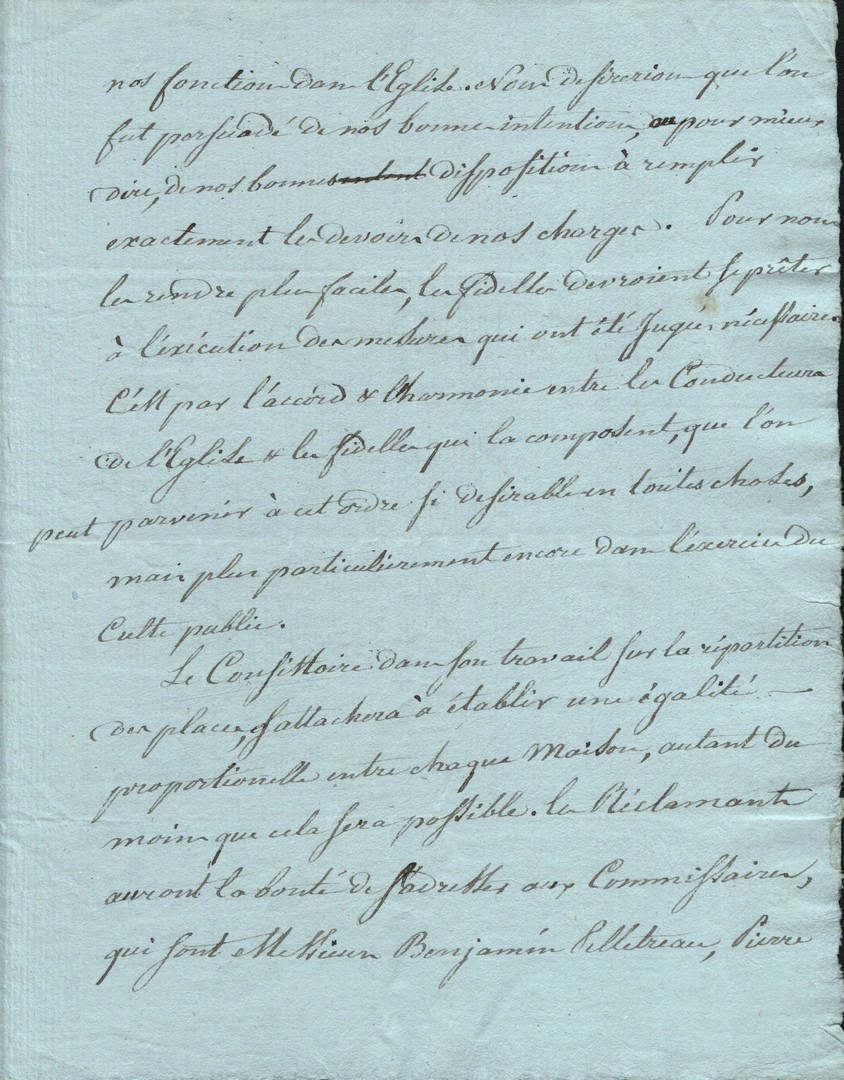 nos fonctions dans l'Eglise. Nous desirerions que l'on
fut persuadé de nos bonnes intentions, ou pour mieux
dire, de nos bonnes intent dispositions à remplir
exactement les devoirs de nos charges. Pour nous
les rendre plus faciles, les fidelles devroient se prêter
à l'éxécution des mesures qui ont été Jugées nécessaires
C'est par l'accord & l'harmonie entre les Conducteurs
de l'Eglise & les fidelles qui la composent, que l'on
peut parvenir à cet ordre si desirable en toutes choses,
mais plus particulièrement encore dans l'éxercice du
Culte public.
Le Consistoire dans son travail sur la répartition
des places, s'attachera à établir une égalité
proportionelle entre chaque Maison, autant du
moins que cela sera possible. les Réclamants
auront la bonté de s'adresser aux Commissaires,
qui sont Messieurs Benjamin Pelletreau, Pierre